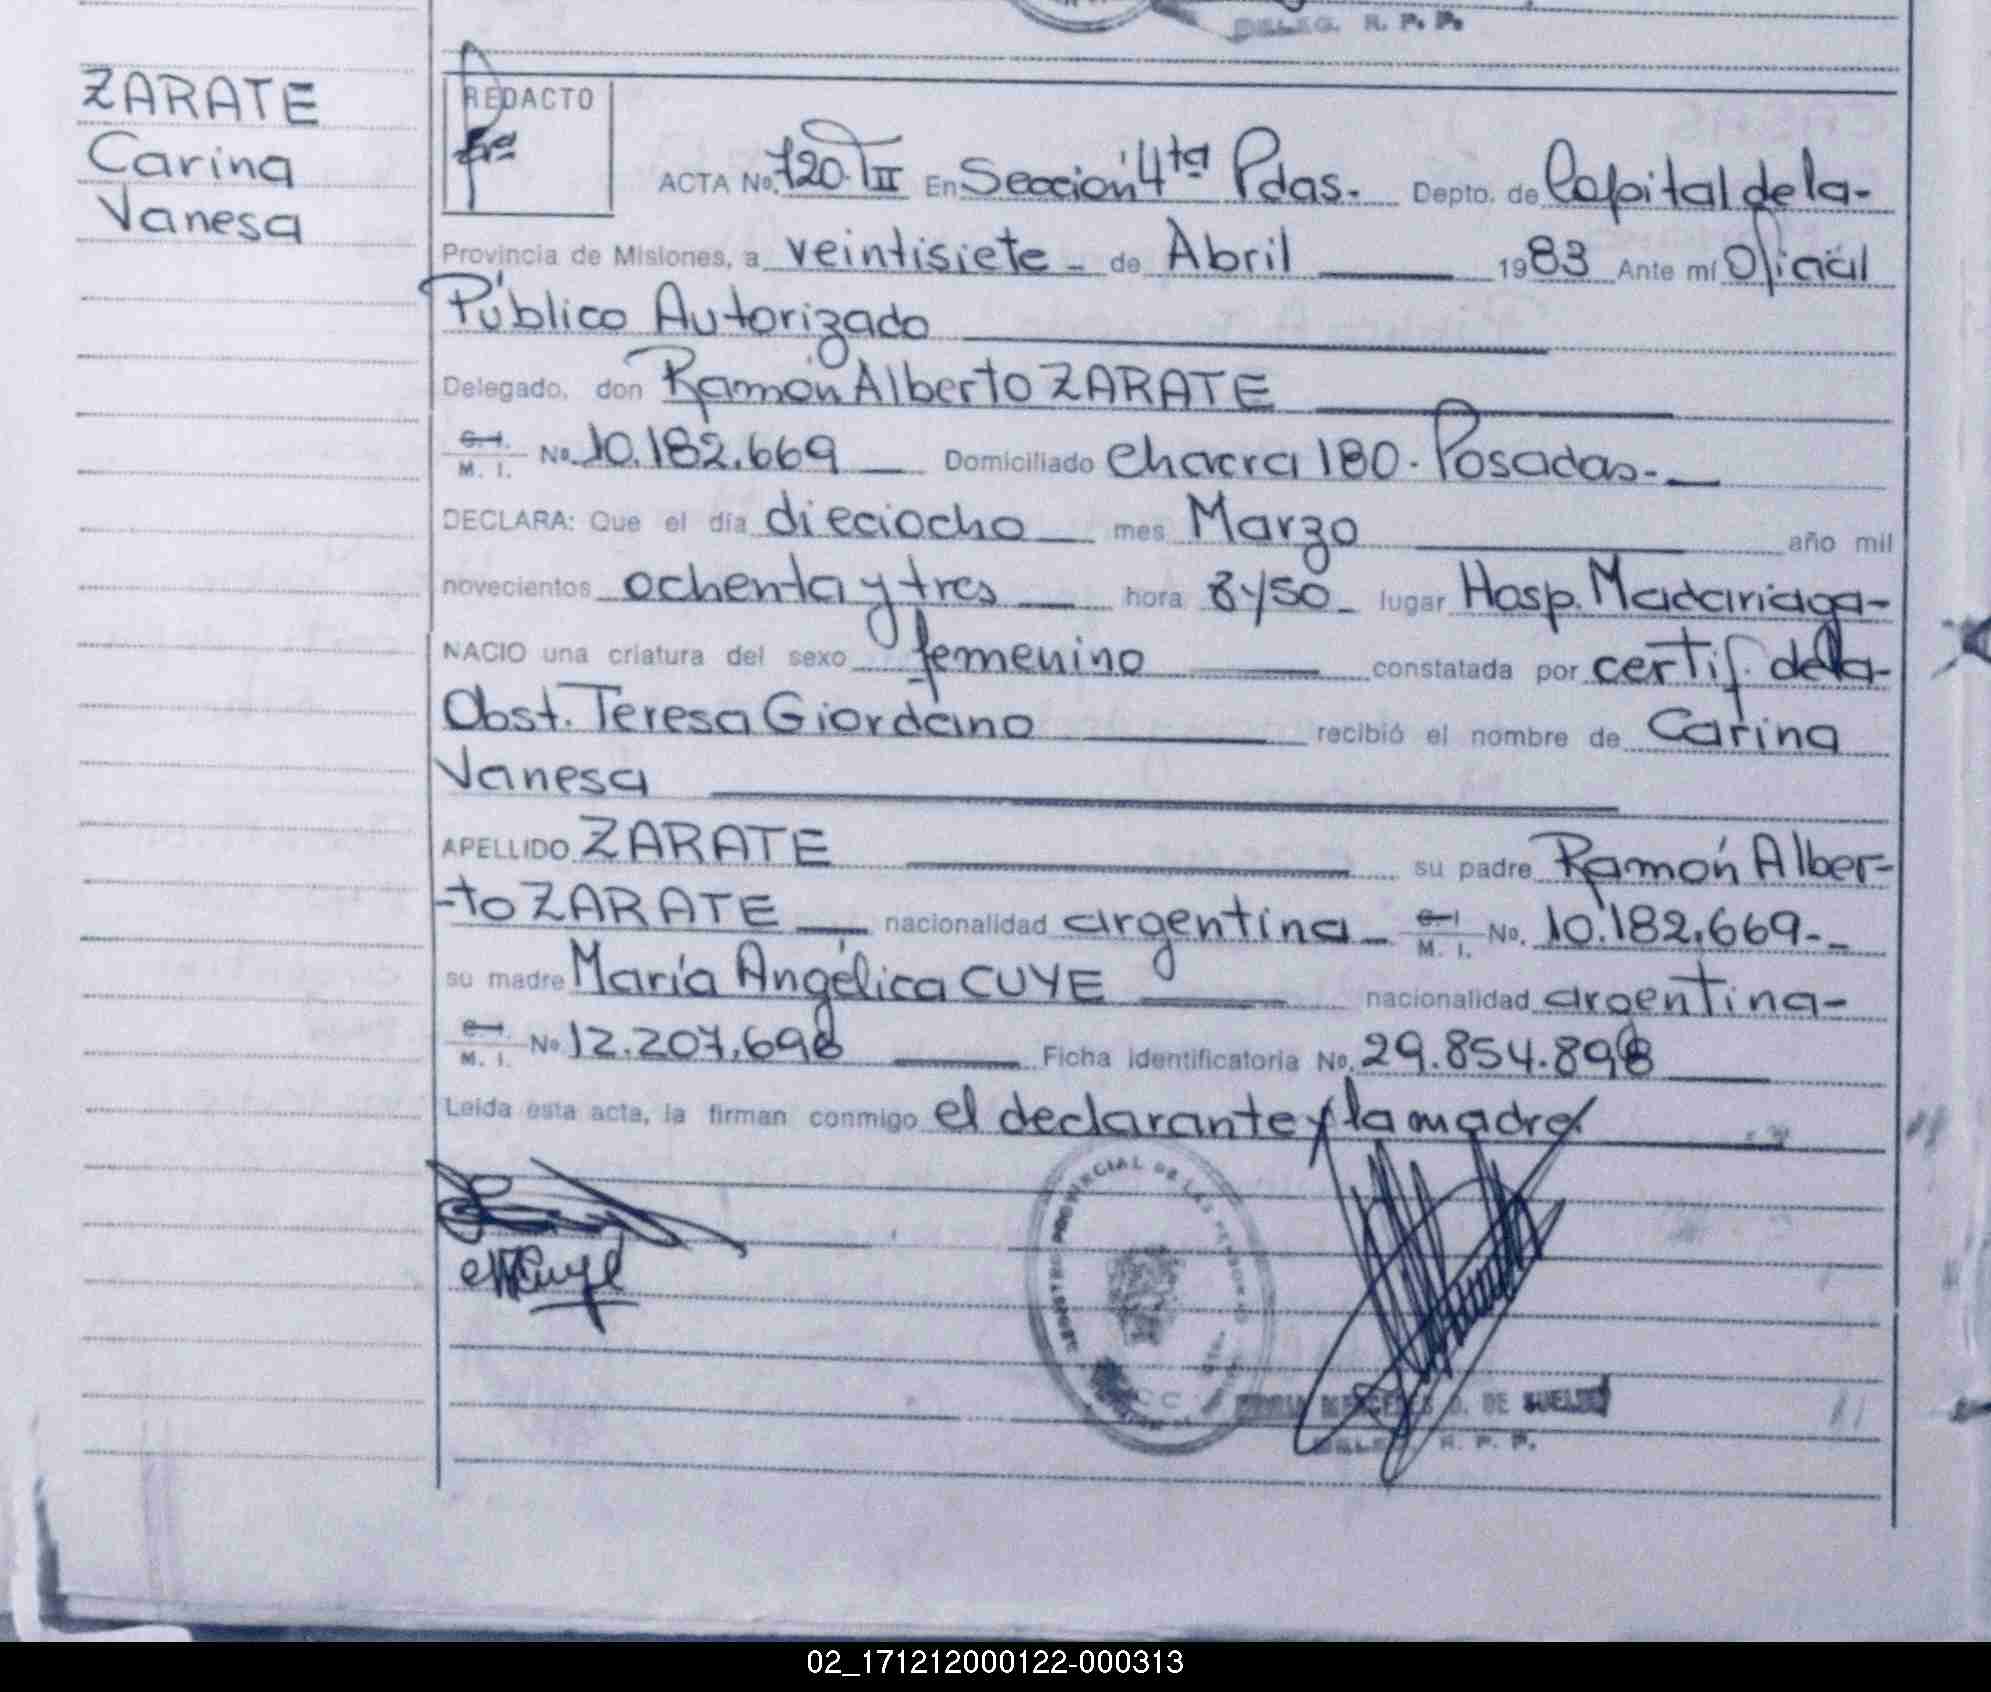 DELEG. R. P. P.
ZARATE
Carina
Vanesa
REDACTO
ACTA No. 720. T II En Sección 4ta Pdas. Depto. de Capital de la-
Provincia de Misiones, a veintisiete - de Abril 1983 Ante mí Oficial
Público Autorizado
Delegado, don Ramón Alberto ZARATE
C.I. M. I. No. 10.182.669 Domiciliado Chacra 180. Posadas.-
DECLARA: Que el día dieciocho mes Marzo año mil
novecientos ochenta y tres hora 8y50- lugar Hosp. Madariaga-
NACIO una criatura del sexo femenino constatada por certif. de la-
Obst. Teresa Giordano recibió el nombre de Carina
Vanesa
APELLIDO ZARATE su padre Ramón Alber-
-to ZARATE nacionalidad argentina- C.I. M. I. No. 10.182.669.-
su madre María Angélica CUYE nacionalidad argentina-
C.I. M. I. No 12.207.698 Ficha identificatoria No. 29.854.898
Leída esta acta, la firman conmigo el declarante y la madre.
REGISTRO PROVINCIAL DE LAS PERSONAS
MACuye
MERCEDES D. DE SUELDO
DELEG. R. P. P.
02_171212000122-000313